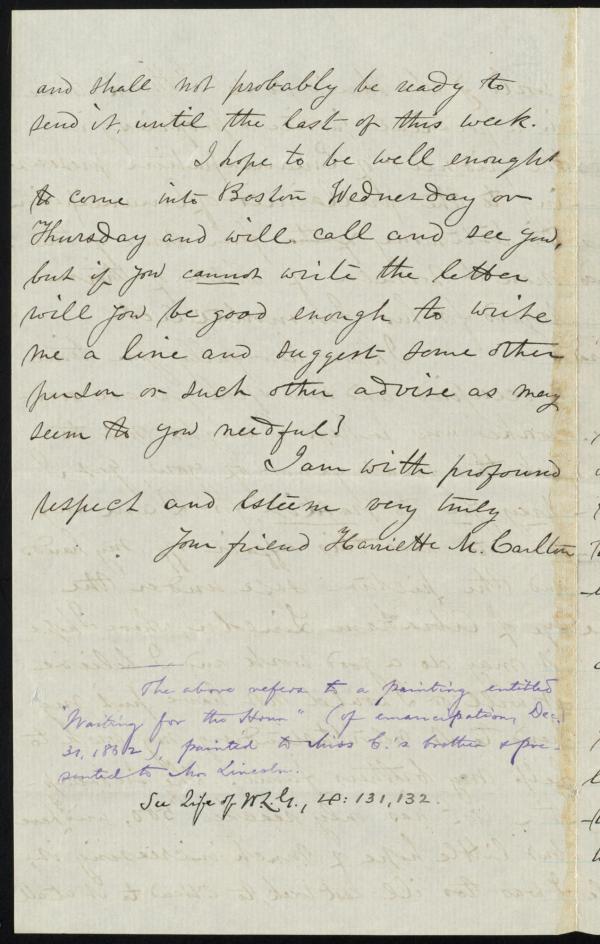 and shall not probably be ready to
send it, until the last of this week.
I hope to be well enought
to come into Boston Wednesday or
Thursday and will call and see you,
but if you cannot write the letter
will you be good enough to write
me a line and suggest some other
person or such other advise as may
seem to you needful?
I am with profound
respect and Esteem very truly
Your friend Harriette M. Carlton
The above refers to a painting entitled
"Waiting for the Hour" (of emancipation, Dec.
31, 1862), painted to Miss C.'s brother & pre-
sented to Mr. Lincoln.
See Life of W.L.G., 4: 131, 132.